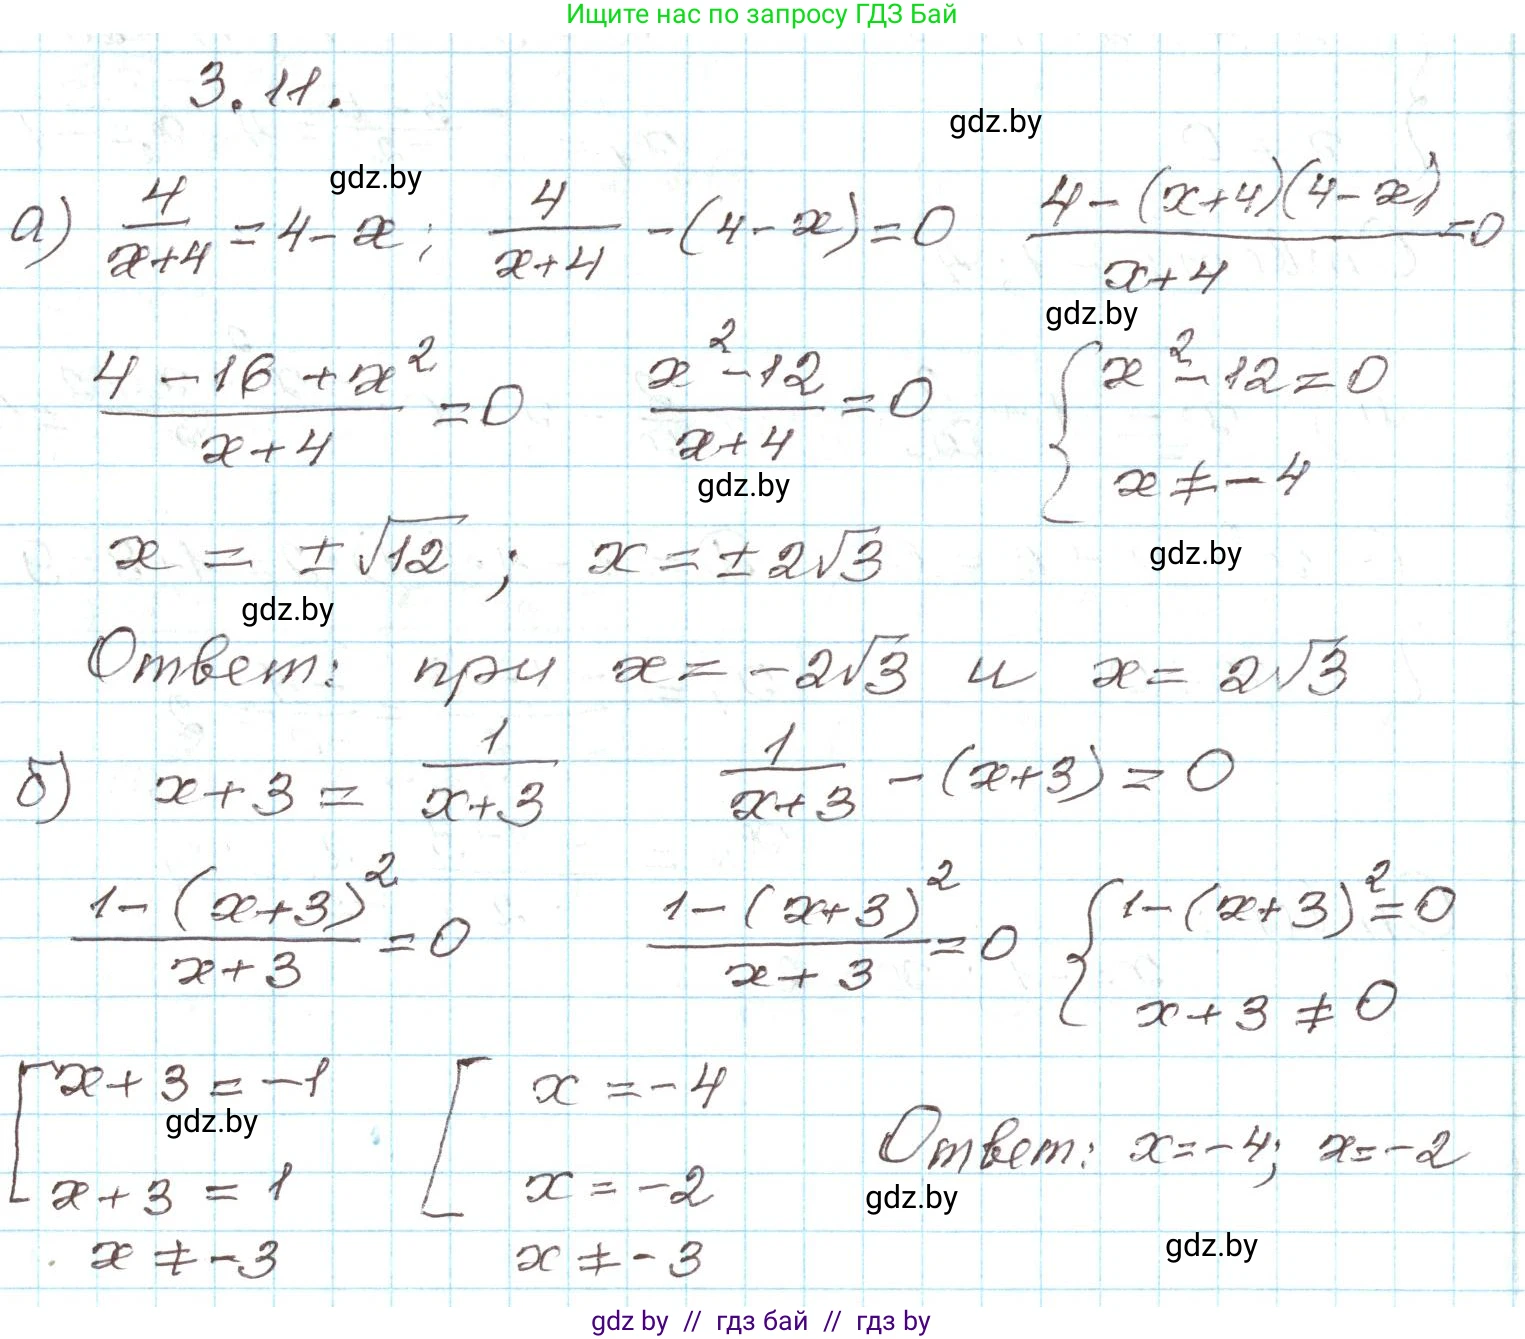 Ищите нас по запросу ГДЗ Бай
3.11.
gdz.by
gdz.by
а) 4/(x+4) = 4-x; 4/(x+4) -(4-x)=0 (4-(x+4)(4-x))/(x+4) =0
gdz.by
(4-16+x²)/(x+4) =0 (x²-12)/(x+4) =0 { x²-12=0
x≠-4
gdz.by
x = ±√12; x=±2√3
gdz.by
gdz.by
Ответ: при x=-2√3 и x=2√3
б) x+3 = 1/(x+3) 1/(x+3) -(x+3) = 0
(1-(x+3)²)/(x+3) =0 (1-(x+3)²)/(x+3) =0 { 1-(x+3)²=0
x+3 ≠ 0
[ x+3=-1 [ x=-4
gdz.by
Ответ: x=-4; x=-2
x+3 = 1 x=-2
gdz.by
x≠-3 x≠-3
gdz.by
gdz by // гдз бай // гдз by